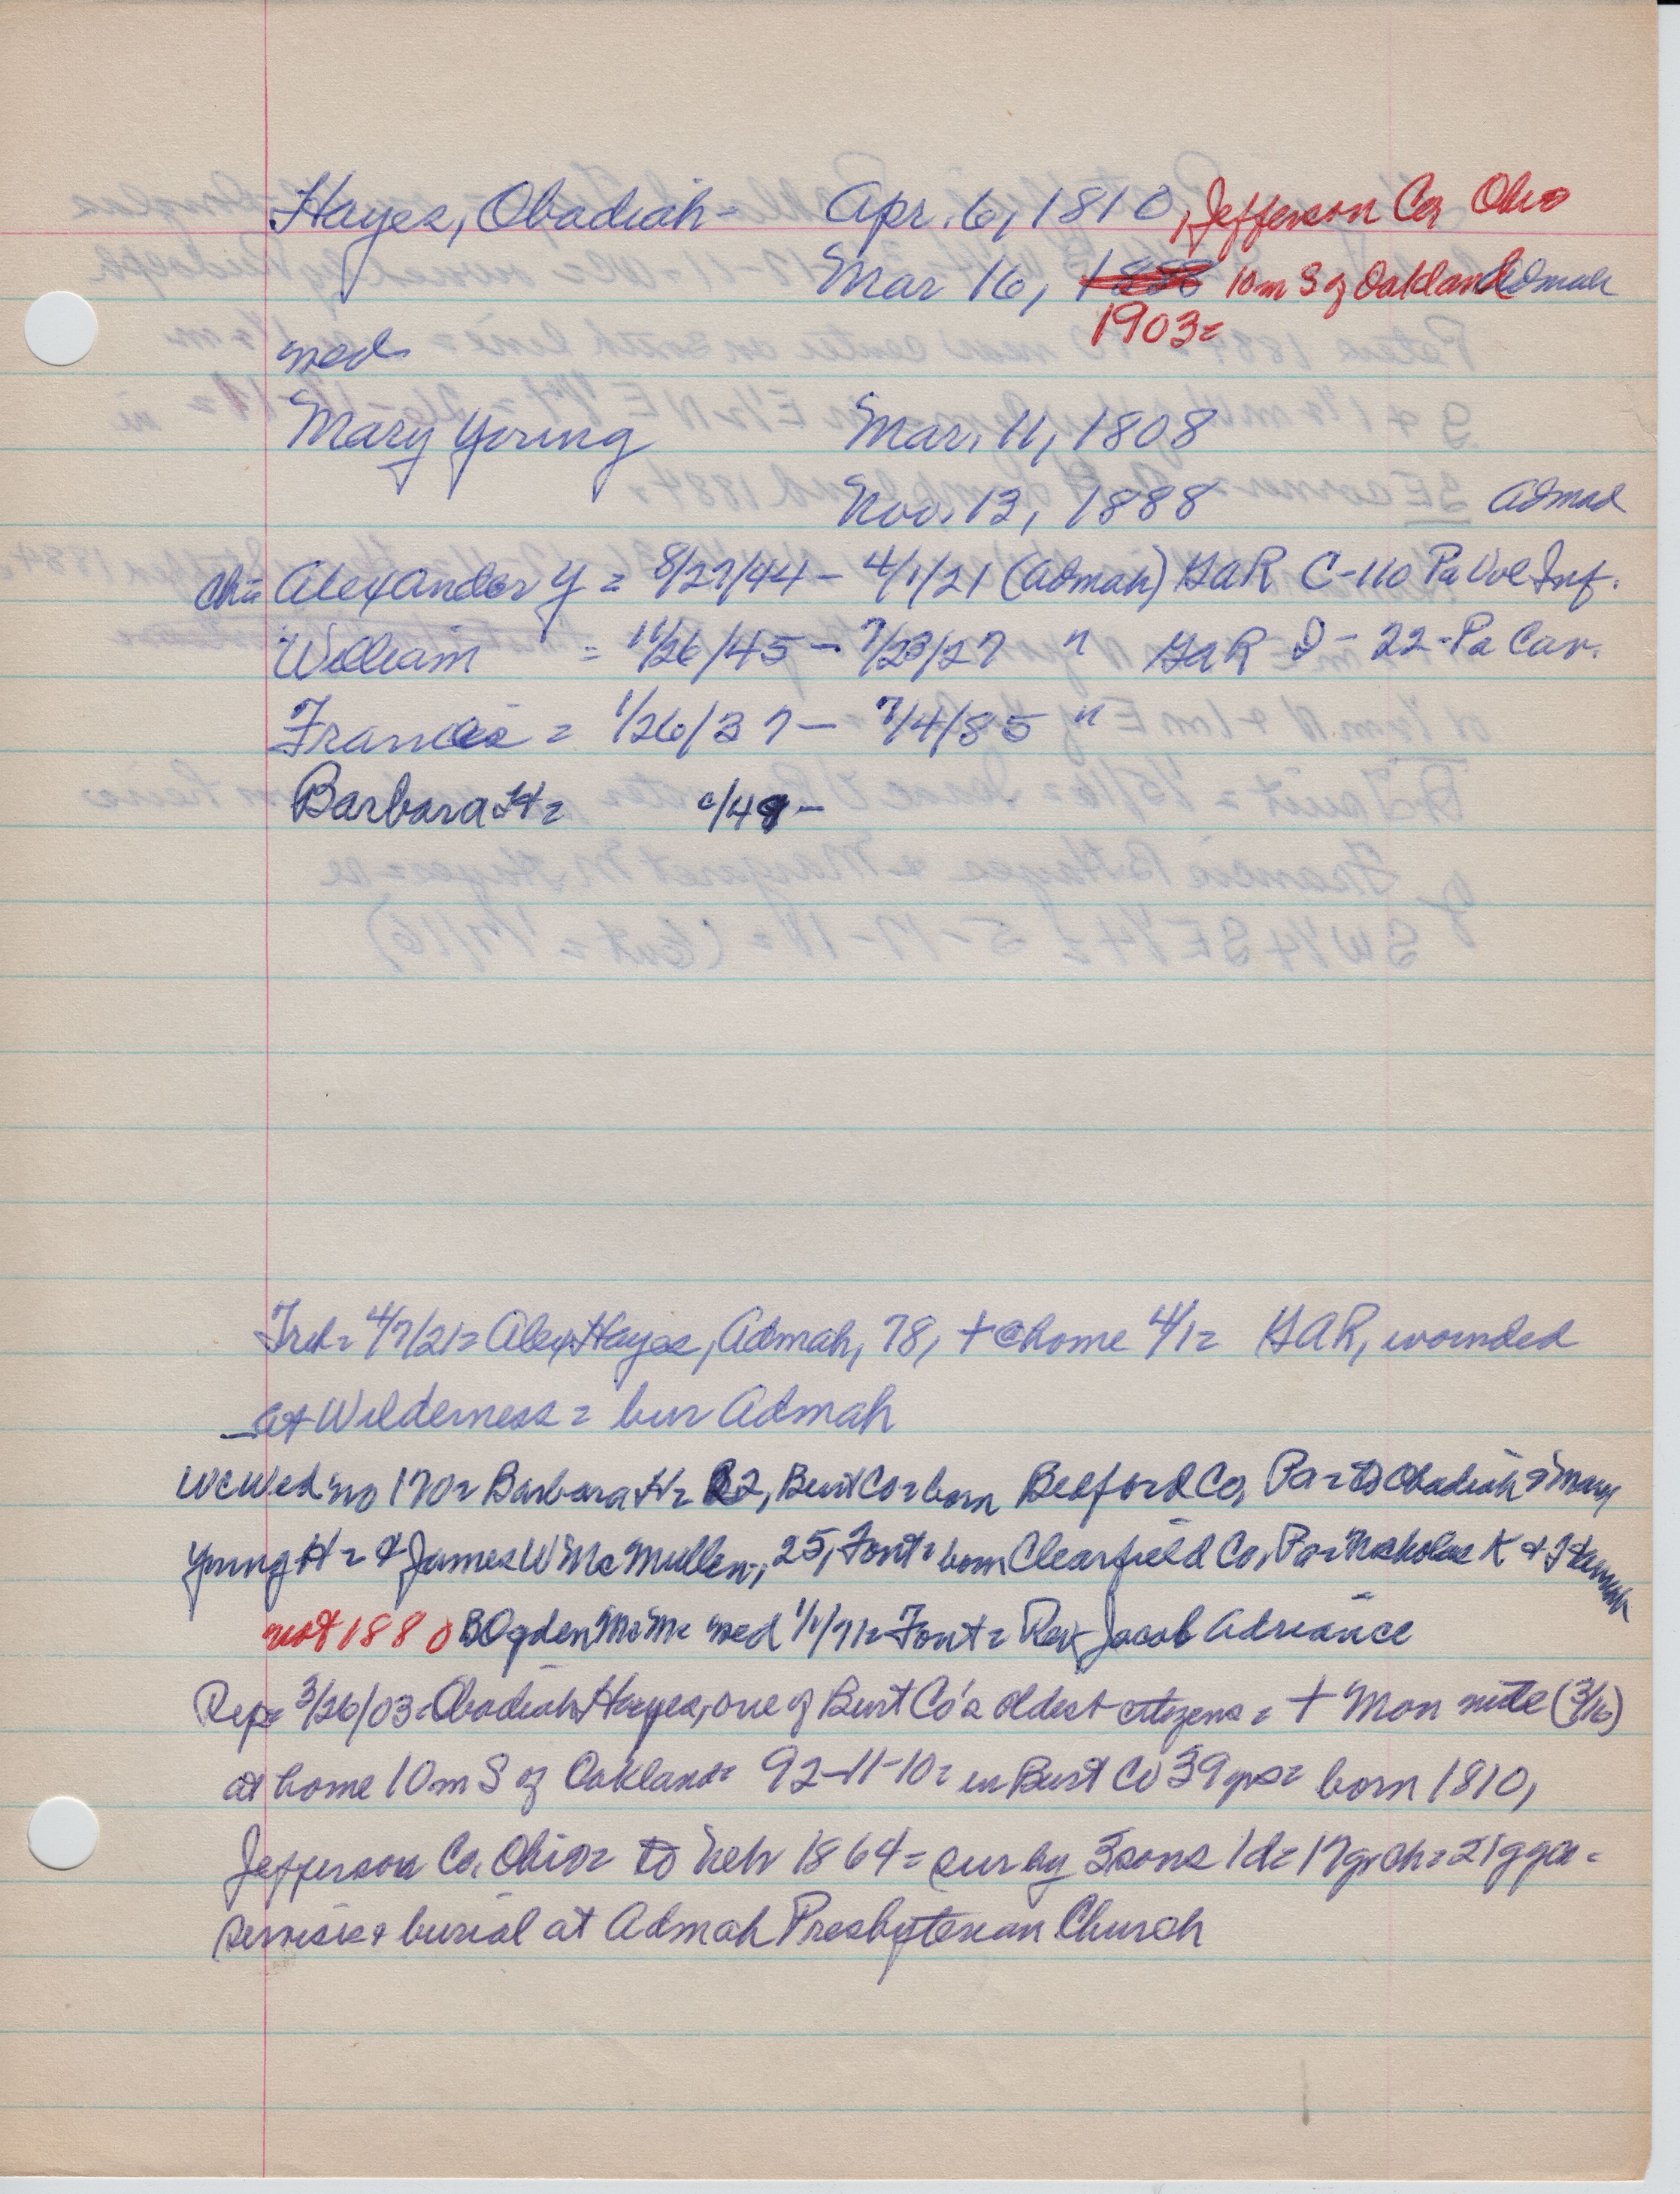 Hayes, Obadiah - Apr. 6, 1810, Jefferson Co, Ohio
Mar 16, 1888 10m S of Oakland Admah
1903=
med
Mary Young Mar. 11, 1808
Nov. 13, 1888 Admah
Ch= Alexander Y = 8/27/44 - 4/1/21 (Admah) GAR C-110 Pa Vol Inf.
William = 11/26/45 - 7/23/27 " GAR D - 22 - Pa Cav.
Francis = 1/26/37 - 7/4/85 "
Barbara H = c/49 -
Trib= 4/7/21= Alex Hayes, Admah, 78, + @ home 4/1= GAR, wounded
at Wilderness = bur Admah
WC Wed no 170= Barbara H= 22, Burt Co= born Bedford Co, Pa= to Obadiah & Mary
Young H = & James W McMullen, 25, Font= born Clearfield Co, Pa= Nicholas K & Hannah
not 1880 B Ogden McMc med 1/1/71= Font= Rev Jacob Adriance
Rep= 3/26/03= Obadiah Hayes, one of Burt Co's oldest citizens = + Mon nite (3/16)
at home 10m S of Oakland= 92-11-10= in Burt Co 39 yrs= born 1810,
Jefferson Co, Ohio= to Neb 1864= sur by 3 sons 1d= 17 grch= 21 ggch=
services & burial at Admah Presbyterian Church